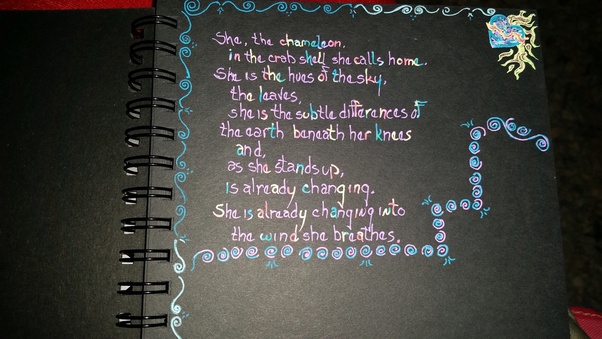 She, the chameleon,
in the crab shell she calls home.
She is the hues of the sky,
the leaves,
she is the subtle differences of
the earth beneath her knees
and,
as she stands up,
is already changing.
She is already changing into
the wind she breathes.